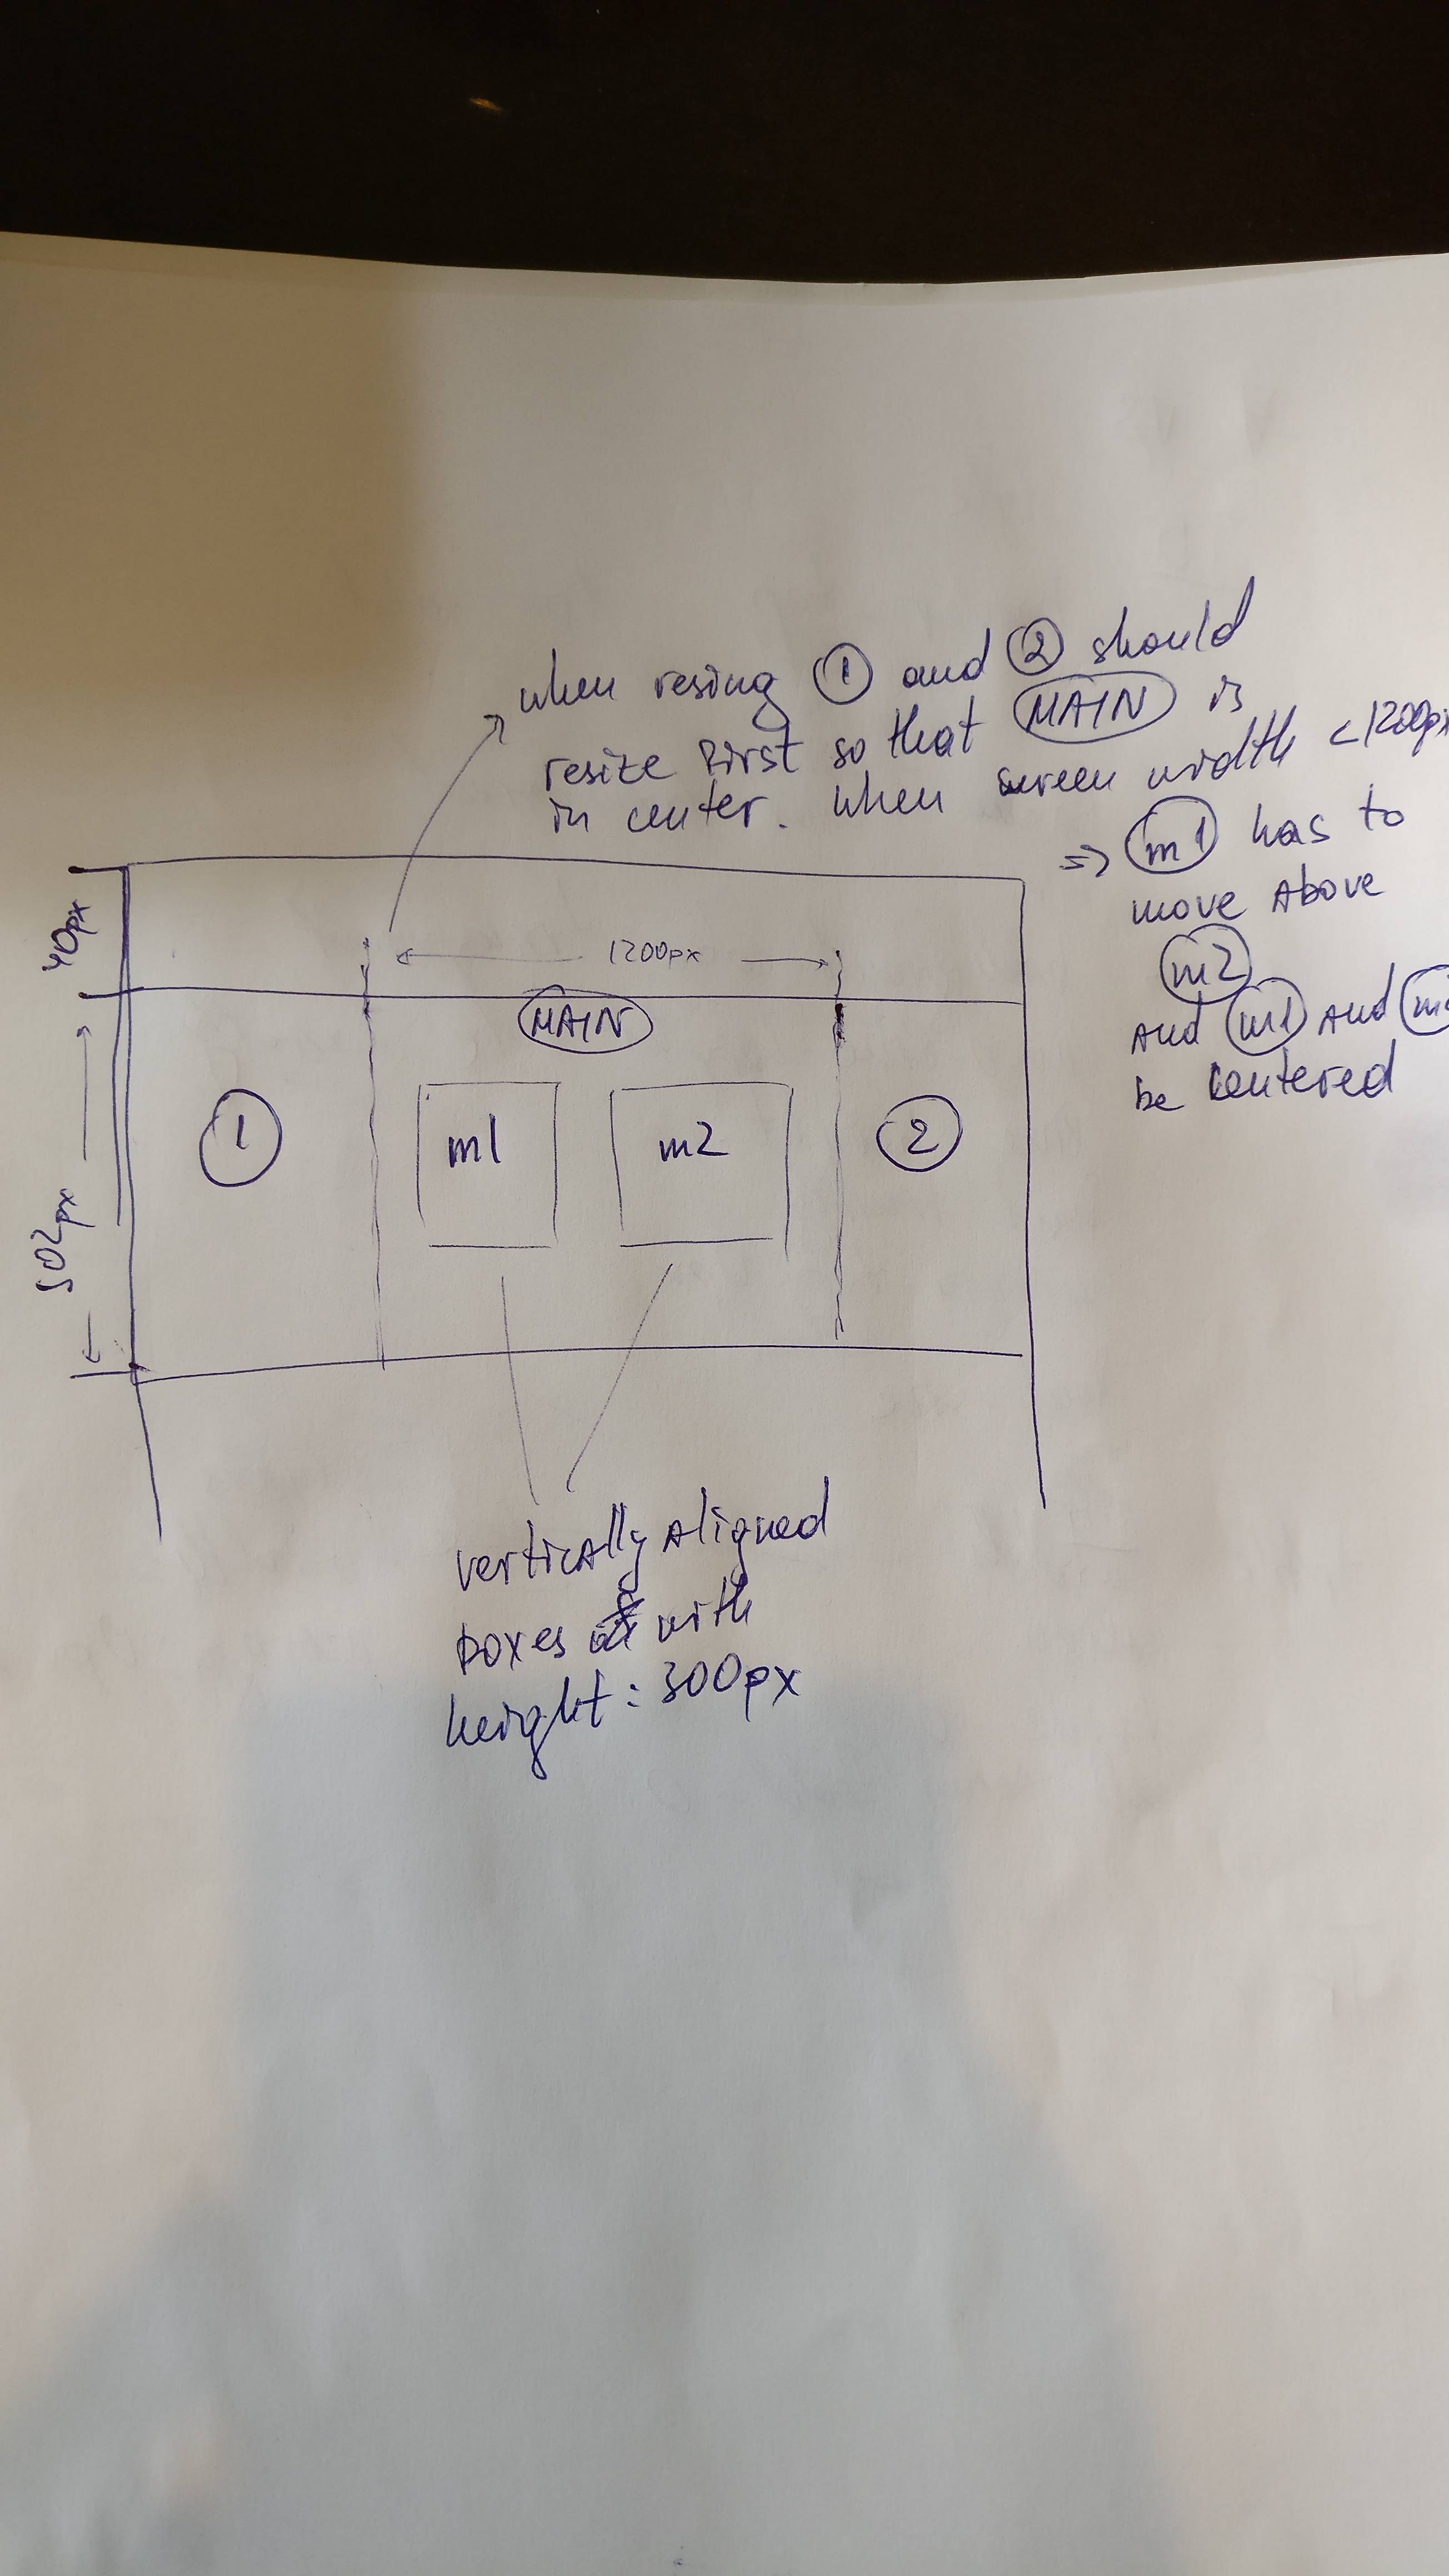 when resing 1 and 2 should
resize first so that MAIN is
in center. when screen width <1200px
=> m1 has to
move Above
m2
and m1 and
be centered
40px
1200px
MAIN
1
m1
m2
2
502px
vertically aligned
boxes with
height: 300px